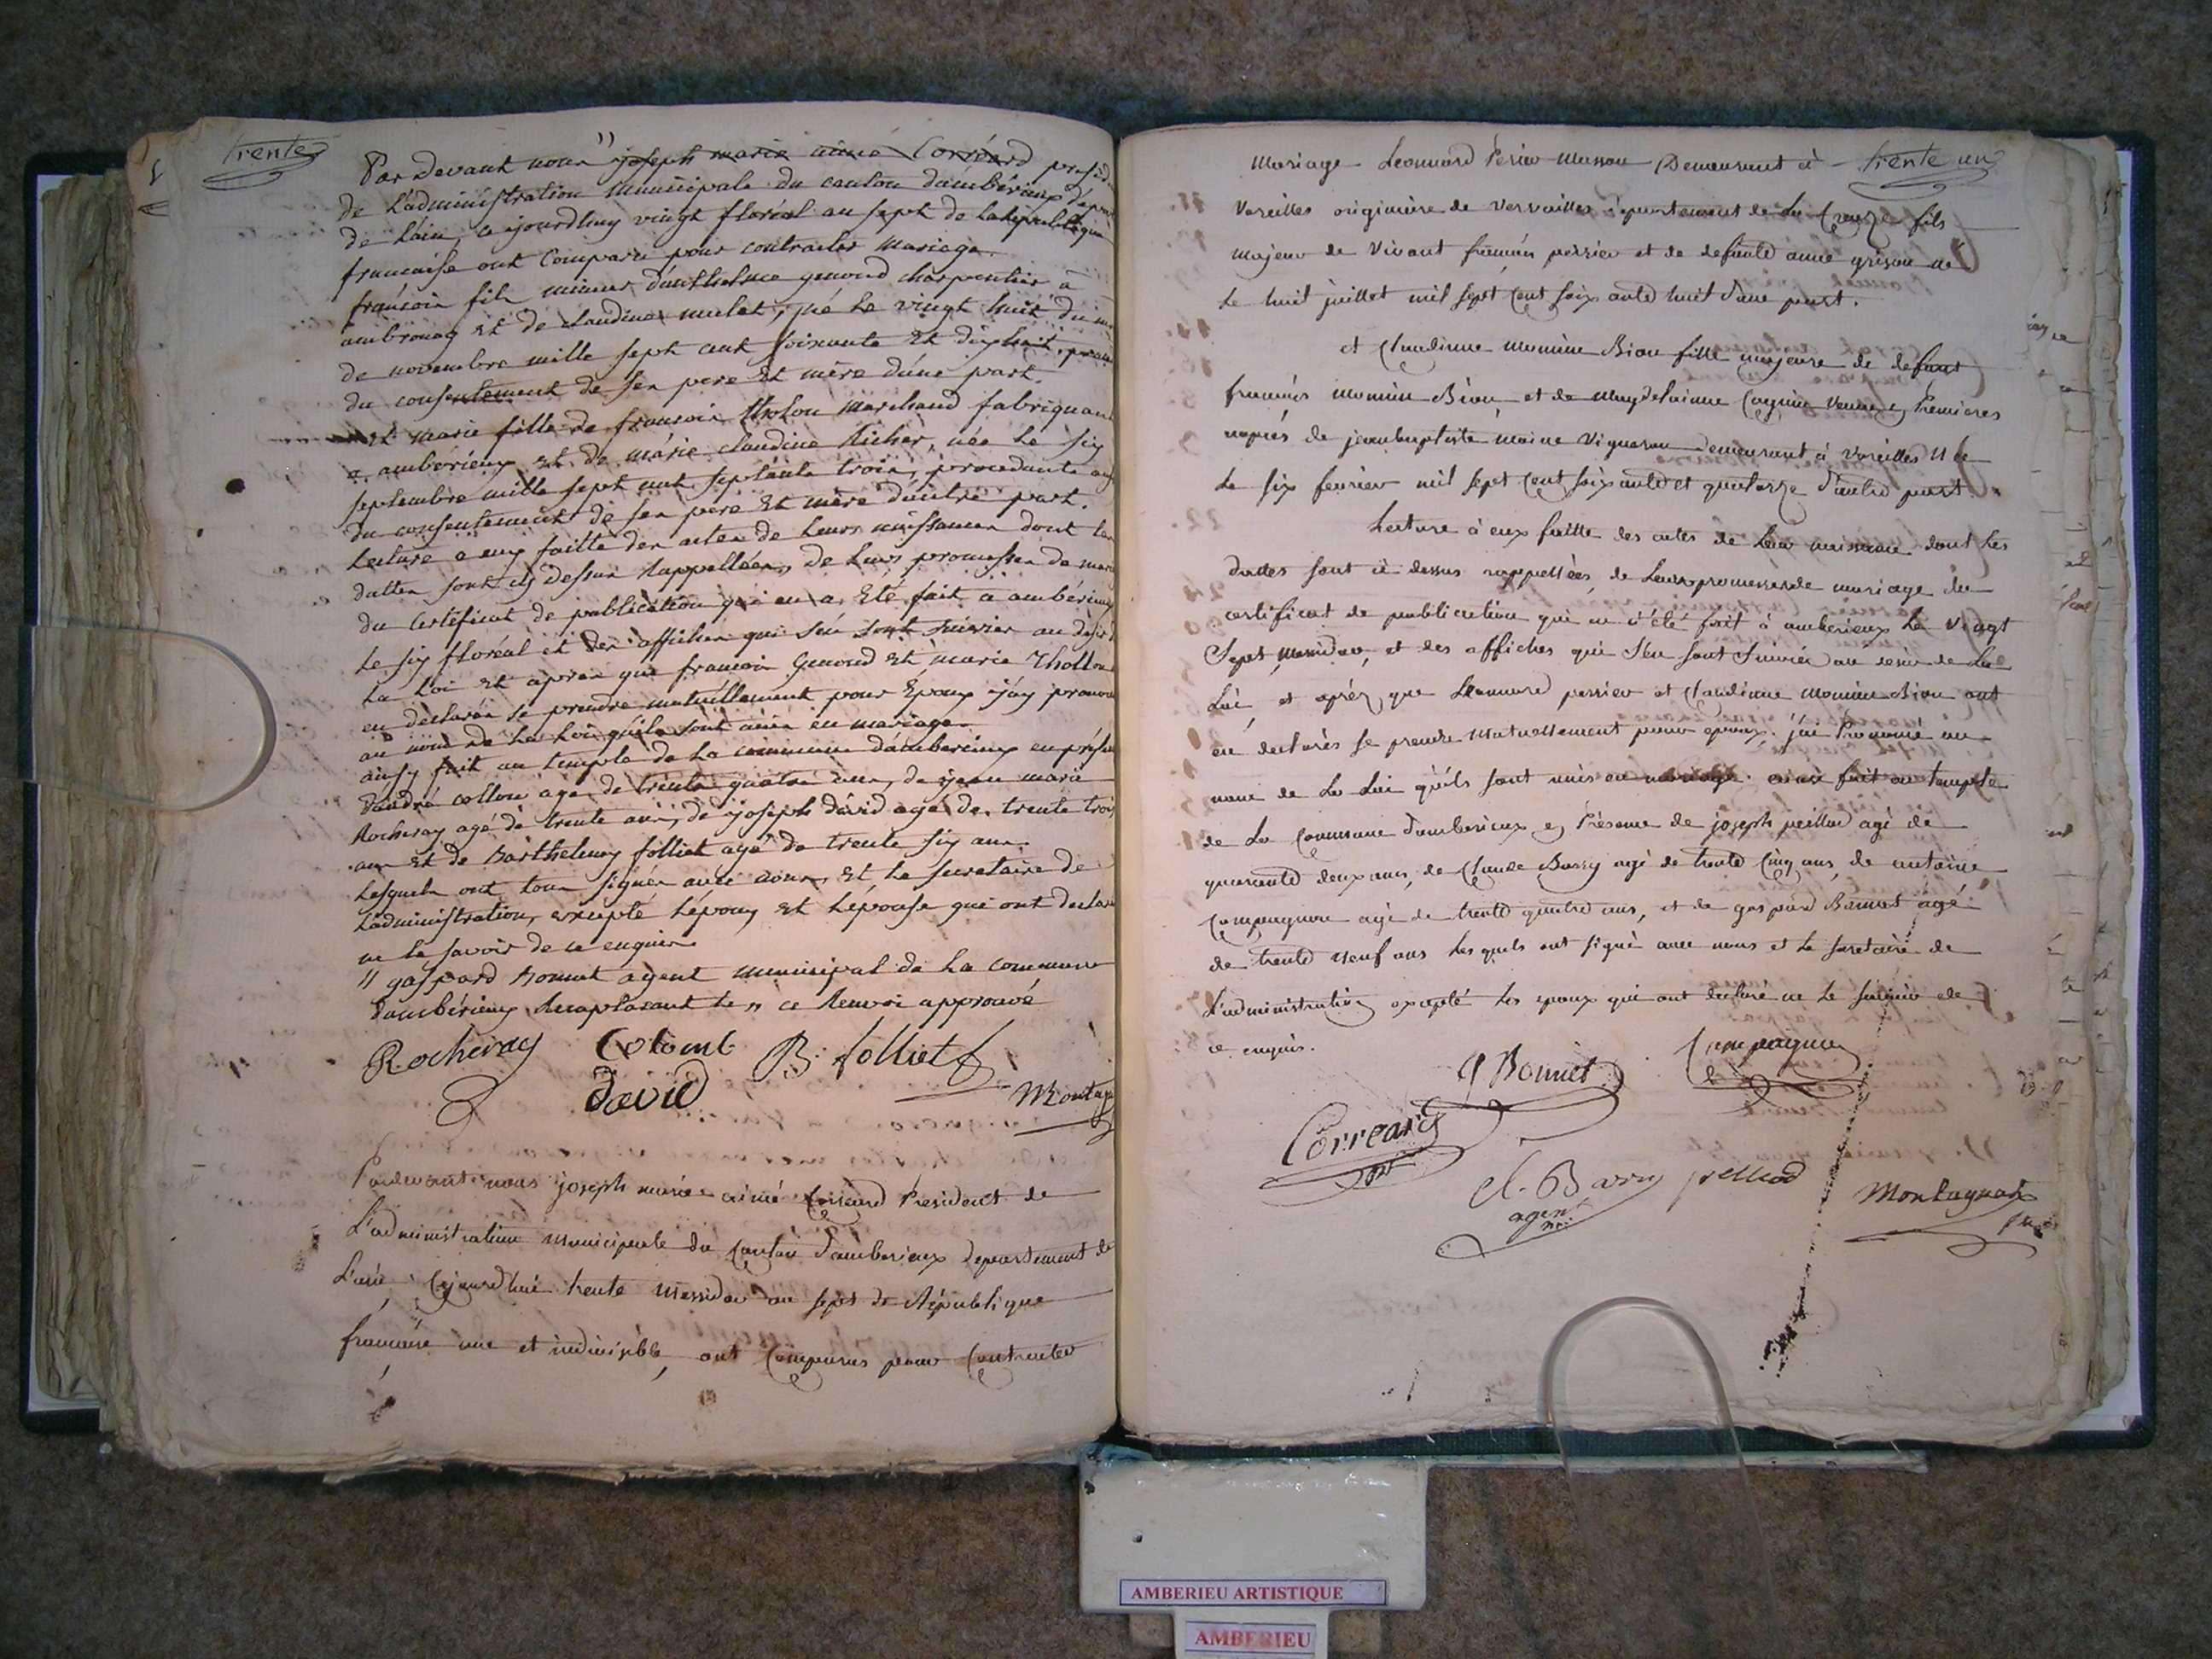 trente
Par devant nous " joseph marie aimé Corréard présid
de L'administration municipale du canton d'ambérieux dépar
de L'ain, ce jourdhuy vingt floréal an sept de La république
française ont Comparu pour contracter mariage.
françois fils mineur d'anthelme genoud charpentier à
ambronay et de claudine mulet, né le vingt huit du
de novembre mille sept cent soixante et dix huit,
du consentement de ses pere et mère d'une part.
et marie fille de françois tholon marchand fabriquant
a ambérieux et de marie claudine Richer, née le six
septembre mille sept cent septante trois, procedante aux
du consentement de ses père et mère d'autre part.
Lecture a eux faitte des actes de Leurs naissances dont les
dattes sont cy dessus Rappellées, de Leurs promesses de mari
du certificat de publication qui en a Eté fait à ambérieux
Le six floréal et des affiches qui s'en sont suivies au desir de
La Loi et après que françois Genoud et marie Thollon
en déclarés se prendre mutuéllement pour Epoux j'ay prononcé
au nom de La Loi qu'ils sont unis en mariage.
ainsy fait au temple de La commune d'ambérieux en présence
d'andré collon agé de trente quatre ans, de jean marie
Rocheray agé de trente ans, de joseph david agé de trente trois
ans et de Barthelemy folliet agé de trente six ans.
Lesquels ont tous signés avec nous, et Le secretaire de
L'administration, excepté L'époux et L'épouse qui ont declaré
ne le savoir de ce enquis.
" gaspard Bonnet agent municipal de La commune
d'ambérieux Remplacant le " ce Renvoi approuvé
Rocheray Colomb B. folliet
david Montag
Pardevant nous joseph marie aimé Correard Président de
L'administration Municipale du Canton d'amberieux departement de
L'ain Cejourd'hui trente Messidor an sept de République
francaise une et indivisible, ont Comparus pour Contracter
Mariage Leonnard Périer Masson Demeurant à trente un
Vareilles originaire de Versailles département de La Creuze fils
majeur de Vivant françois perrier et de defunte anne grison né
Le huit juillet mil sept Cent soixante huit d'une part.
et Claudinne momin Bion fille majeure de defunt
francois momin Bion, et de Magdelainne Cagnin Veuve en Premieres
nopces de jeanbaptiste moine Vigneron demeurant à Vareilles Née
Le six fevrier mil sept Cent soixante et quatorze d'autre part.
Lecture à eux faitte des actes de Leur naissance dont Les
dattes sont ci dessus rappellées, de Leurs promesses de mariage du
certificat de publication qui en a été fait à amberieux Le Vingt
Sept Messidor, et des affiches qui S'en sont Suivies au desir de La
Loi, et après que Leonnard perrier et Claudinne momin Bion ont
eu declarés se prendre Mutuellement pour epoux. j'ai Prononcé au
nom de La Loi qu'ils sont unis en mariage. ainsi fait au temple
de La Commune d'amberieux en Présence de joseph peillod agé de
quarante deux ans, de Claude Barry agé de trente Cinq ans, de antoine
Compagnon agé de trente quatre ans, et de gaspard Bonnet agé
de trente Neuf ans Lesquels ont signé avec nous et Le Secretaire de
L'administration excepté Les epoux qui ont declaré ne Le Savoir de
ce enquis.
G Bonnet Compagnon
Correard
pst
Cl. Barry peillod
agent
Montagnat
AMBERIEU ARTISTIQUE
AMBERIEU